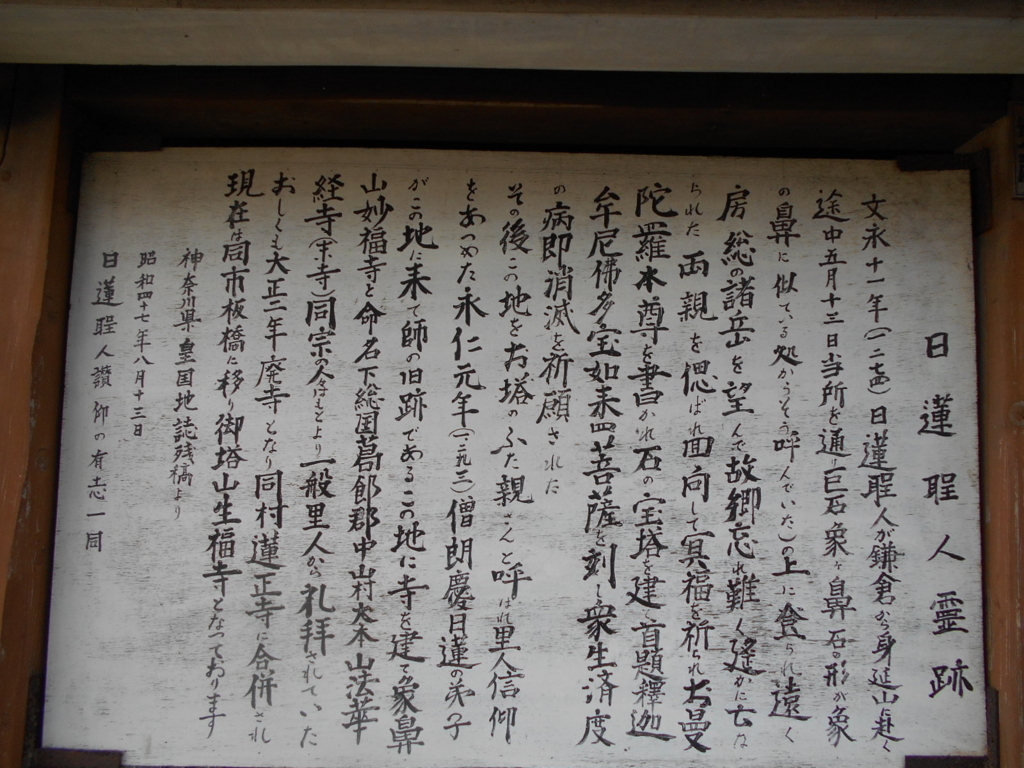 日蓮聖人霊跡
文永十一年(一二七四)日蓮聖人が鎌倉から身延山に赴く
途中五月十三日当所を通り巨石象ヶ鼻(石の形が象
の鼻に似ている処からそう呼んでいた)の上に登られ遠く
房総の諸岳を望んで故郷忘れ難く遙かに亡な
られた両親を偲ばれ回向して冥福を祈られお曼
陀羅本尊を書かれ石の宝塔を建て首題釋迦
牟尼佛多宝如来四菩薩を刻し衆生済度
の病即消滅を祈願された
その後この地をお塔のふた親さんと呼ばれ里人信仰
をあつめた永仁元年(一二九三)僧朗慶日蓮の弟子
がこの地に来て師の旧跡であるこの地に寺を建て象鼻
山妙福寺と命名下総国葛飾郡中山村大本山法華
経寺(末寺)同宗の人はもとより一般里人から礼拝されていた
おしくも大正二年廃寺となり同村蓮正寺に合併され
現在は同市板橋に移り御塔山生福寺となっております
神奈川県皇国地誌残稿より
昭和四十七年八月十三日
日蓮聖人讃仰の有志一同